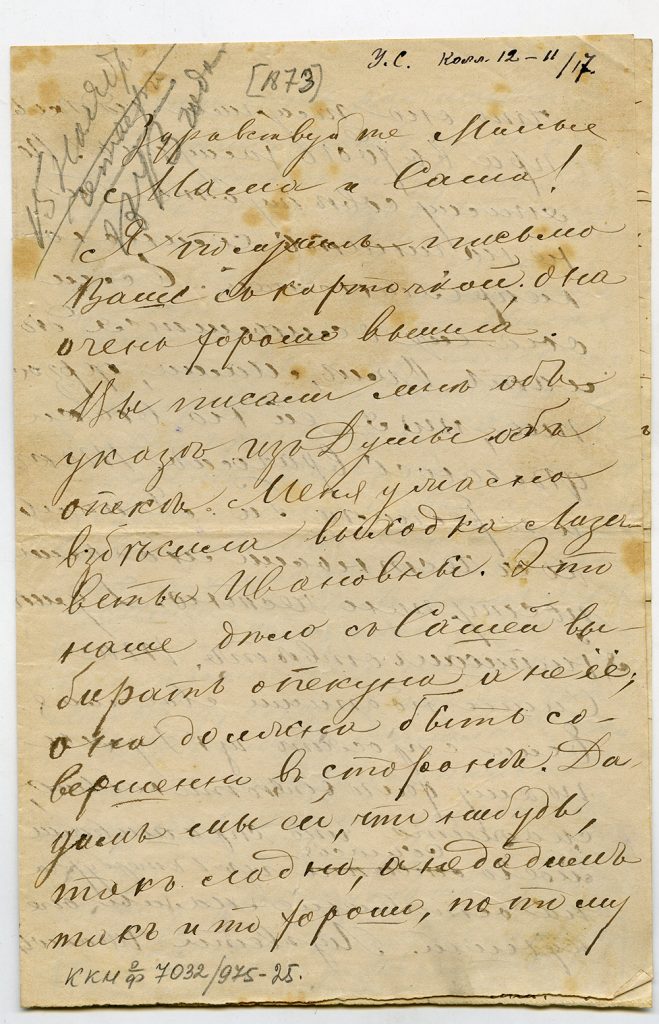 У.С. Колл. 12-11/17.
[1873]
15 Ноября
Здравствуйте Милые
Мама и Саша!
Я получилъ письмо
Ваше съ карточкой, она
очень хорошо вышла.
Вы писали мнѣ объ
указѣ изъ Думы объ
опекѣ. Меня ужасно
взбѣсила выходка Лиза-
веты Ивановны. Это
наше дѣло съ Сашей вы-
бирать опекуна а не её,
она должна быть со-
вершенно въ сторонѣ. Да-
димъ мы ей, что нибудь,
такъ ладно, а не дадимъ
такъ и то хорошо, потому
ККМ оф 7032/975-25.